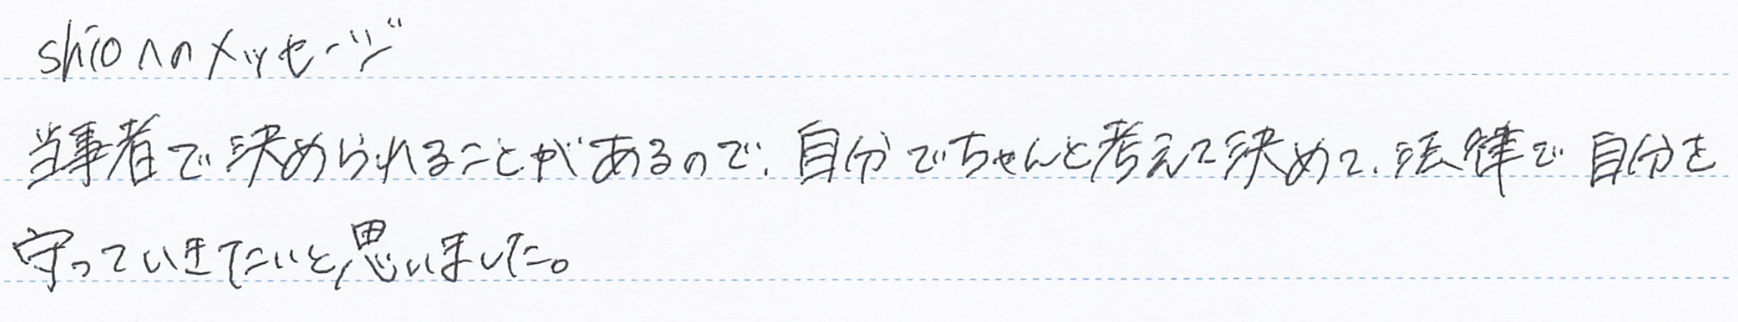 shioへのメッセージ
当事者で決められることがあるので、自分でちゃんと考えて決めて、法律で自分を
守っていきたいと思いました。